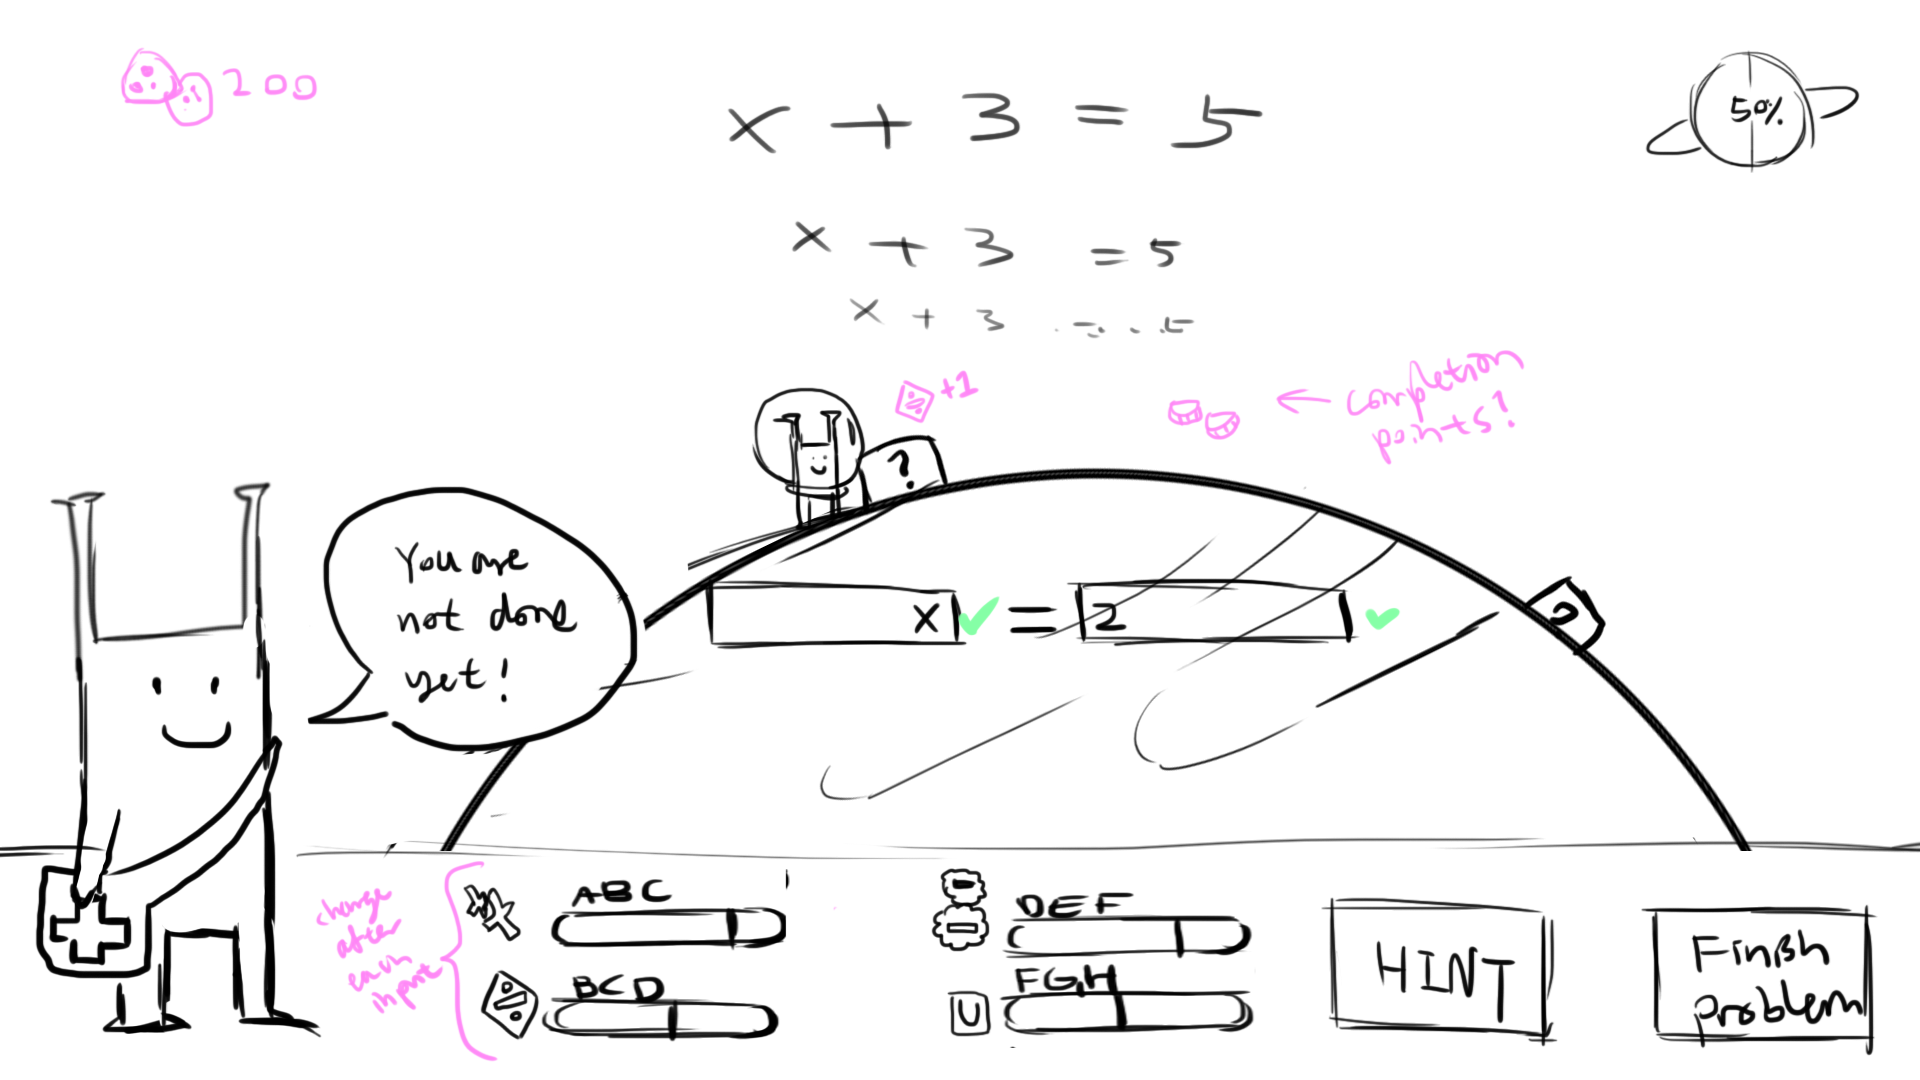 200
x + 3 = 5
50%
x + 3 = 5
x + 3 = 5
+1
completion
points!
?
?
You are
not done
yet!
x = 2
change
after
each
input
ABC
BCD
DEF
FGH
U
HINT
Finish
problem